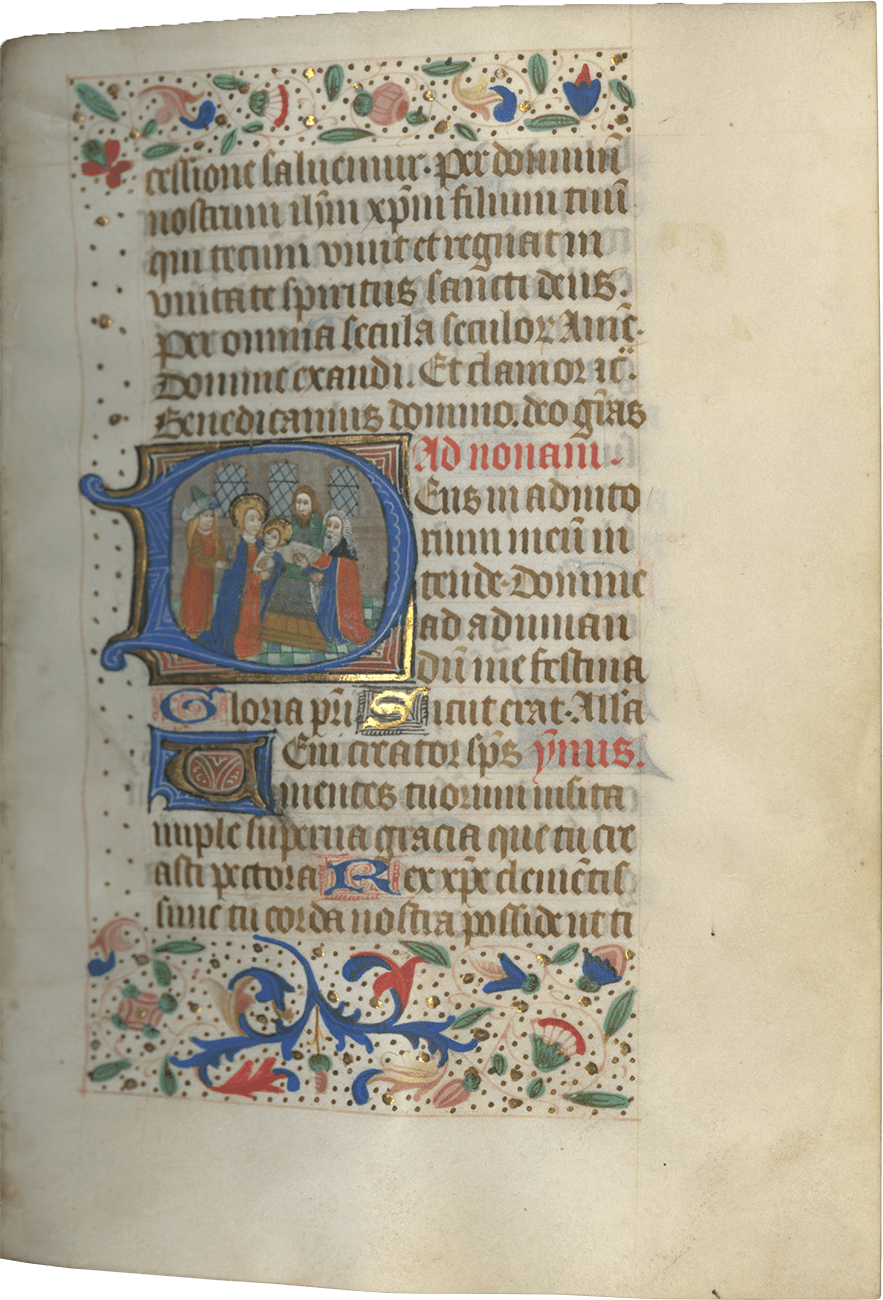 54
cessione saluemur. Per dominū
nostrum ihm̄ xp̄m filium tuū
qui tecum viuit et regnat in
vnitate spiritus sancti deus.
Per omnia secula seculoꝝ Amē.
Domine exaudi. Et clamor ī c̄.
Benedicamus domino. deo gr̄as
Ad nonam.
Deus in adiuto
rium meū in
tende. Domine
ad adiuuan
dū me festina
Gloria pr̄i Sicut erat. All'a
Veni creator sp̄s ymus.
mentes tuorum uisita
imple superna gracia que tu cre
asti pectora Rex xp̄e clemētis
sime tu corda nostra posside ut ti